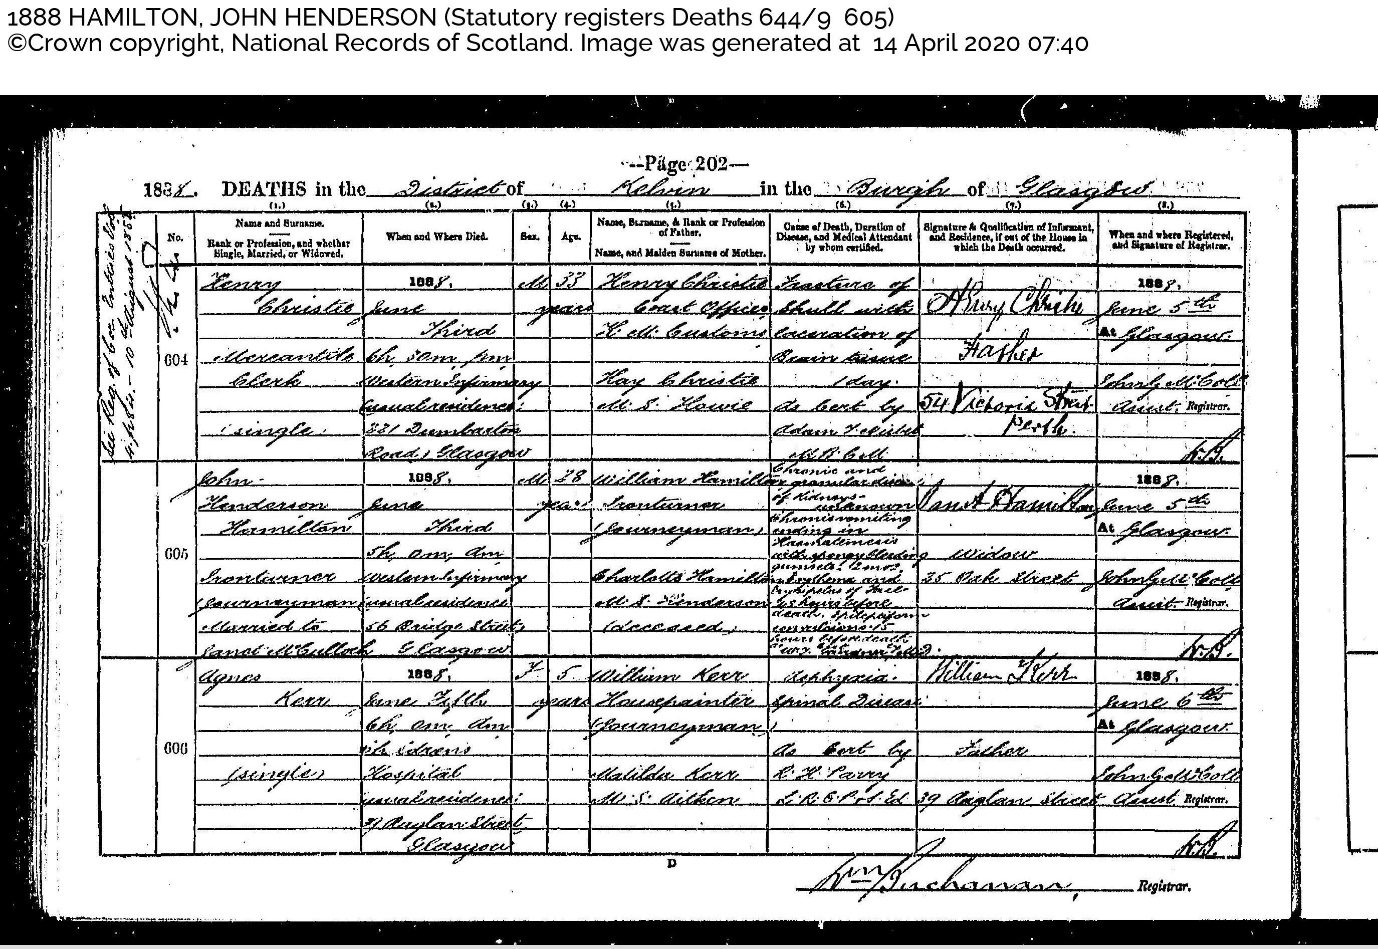 1888 HAMILTON, JOHN HENDERSON (Statutory registers Deaths 644/9 605)
©Crown copyright, National Records of Scotland. Image was generated at 14 April 2020 07:40
--Page 202—
1888. DEATHS in the District of Kelvin in the Burgh of Glasgow
(1.) (2.) (3.) (4.) (5.) (6.) (7.) (8.)
No.
Name and Surname.
Rank or Profession, and whether
Single, Married, or Widowed.
When and Where Died.
Sex.
Age.
Name, Surname, & Rank or Profession
of Father.
Name, and Maiden Surname of Mother.
Cause of Death, Duration of
Disease, and Medical Attendant
by whom certified.
Signature & Qualification of Informant,
and Residence, if out of the House in
which the Death occurred.
When and where Registered,
and Signature of Registrar.
See Reg. of Cor. Entries Vol
10th August 1888
604
Henry
Christie
Mercantile
Clerk
(single)
1888.
June
Third
6h. 30m. pm
Western Infirmary
(usual residence:
331 Dumbarton
Road, Glasgow
M
33
years
Henry Christie
Coast Officer
H. M. Customs
Kay Christie
M. S. Howie
Fracture of
Skull with
laceration of
Brain tissue
1 day.
As Cert by
Adam
M.B. C.M.
Henry Christie
Father
54 Victoria Street
Perth.
1888.
June 5th
At Glasgow.
John G McColl
Assist. Registrar.
W.B.
605
John
Henderson
Hamilton
Ironturner
(Journeyman)
Married to
Janet McCulloch
1888.
June
Third
5h. 0m. am
Western Infirmary
(usual residence
56 Bridge Street,
Glasgow
M
38
years
William Hamilton
Ironturner
(Journeyman)
Charlotte Hamilton
M. S. Henderson
(deceased)
Chronic and
granular disease
of Kidneys-
unknown
Chronic vomiting
ending in
Haematemesis
with spongy bleeding
gums &c. 12 mos.
Erythema and
Erysipelas of Face
hours before
death. Epileptiform
convulsions 15
hours before death
Janet Hamilton
Widow
35 Oak Street
1888.
June 5th
At Glasgow.
John G McColl
Assist. Registrar.
W.B.
606
Agnes
Kerr
(single)
1888.
June Fifth
6h. 0m. am
Sick Childrens
Hospital
(usual residence:
39 Raglan Street,
Glasgow
F
5
years
William Kerr
Housepainter
(Journeyman)
Matilda Kerr
M. S. Aitken
Asphyxia.
Spinal Disease
As Cert by
R. H. Parry
L.R.C.P. & S. Ed
William Kerr
Father
39 Raglan Street
1888.
June 6th
At Glasgow.
John G McColl
Assist. Registrar.
W.B.
D
Wm Buchanan, Registrar.